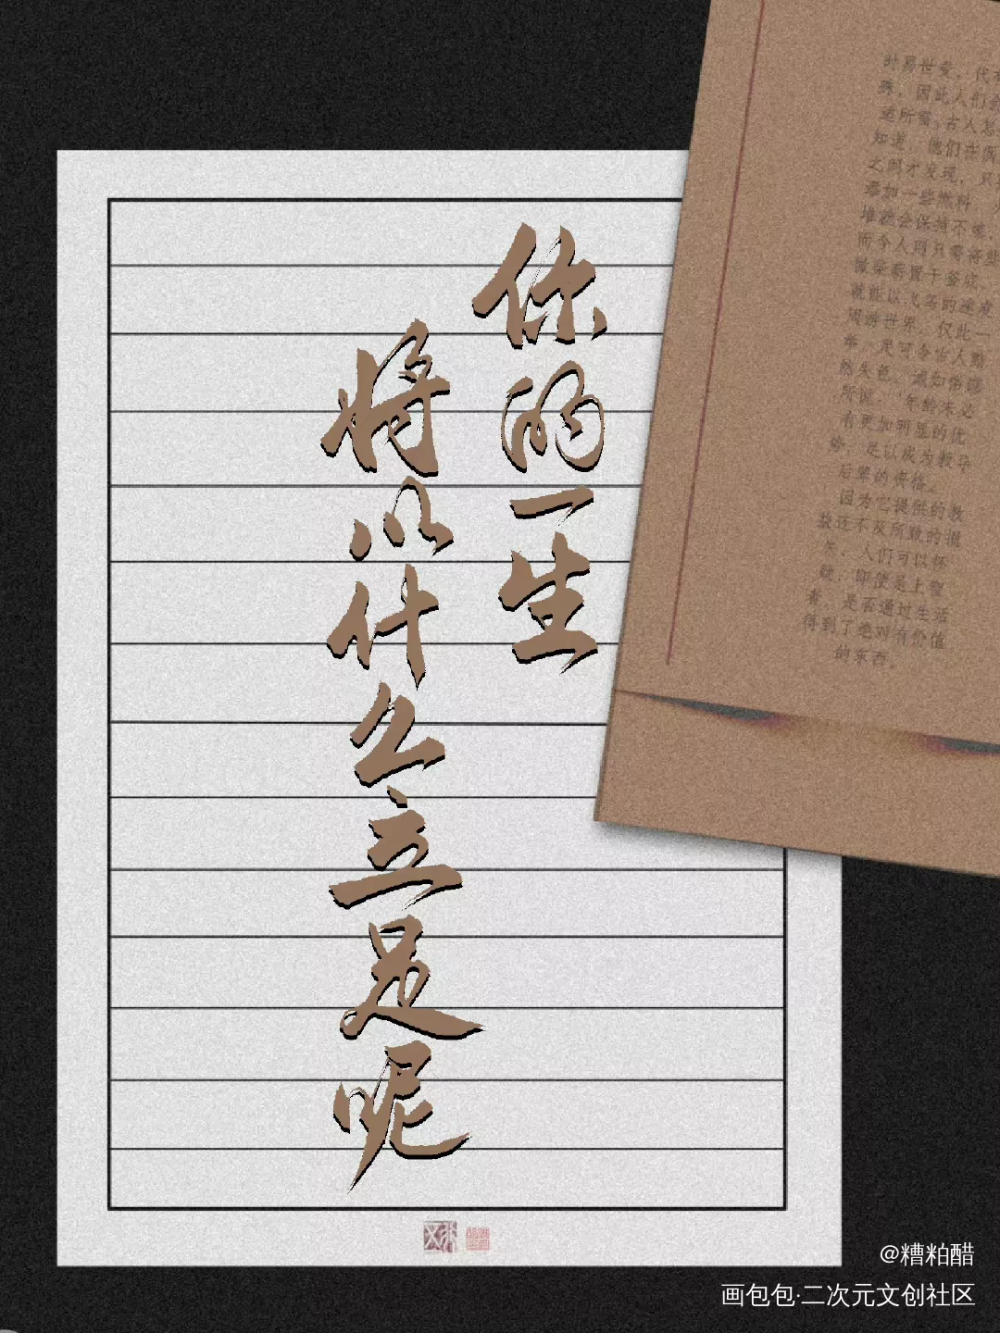 你的一生
将以什么立足呢
时易世变，代
殊，因此人们
适所需，古人怎
知道，他们在
之间才发现，只
添加一些燃料，
堆就会保持不
而今人则只需将些
微柴薪置于釜底，
就能以飞鸟的速度
周游世界，仅此一
举，足可令古人黯
然失色，诚如俗谚
所谓，“年龄未必
有更加明显的优
势，是以成为教导
后辈的资格。
因为它提供的教
益还不及所致的混
灰，人们可以怀
疑，即便是上智
者，是否通过生活
得到了绝对有价值
的东西。
@糟粕醋
画包包·二次元文创社区